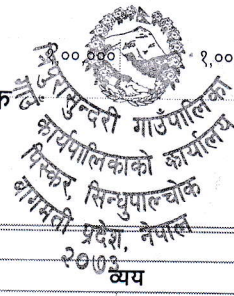 १००,००० १,००
क
त्रिपुरासुन्दरी गाउँपालिका
गाउँ कार्यपालिकाको कार्यालय
पिस्कर, सिन्धुपाल्चोक
बागमती प्रदेश, नेपाल
२०७३
व्यय